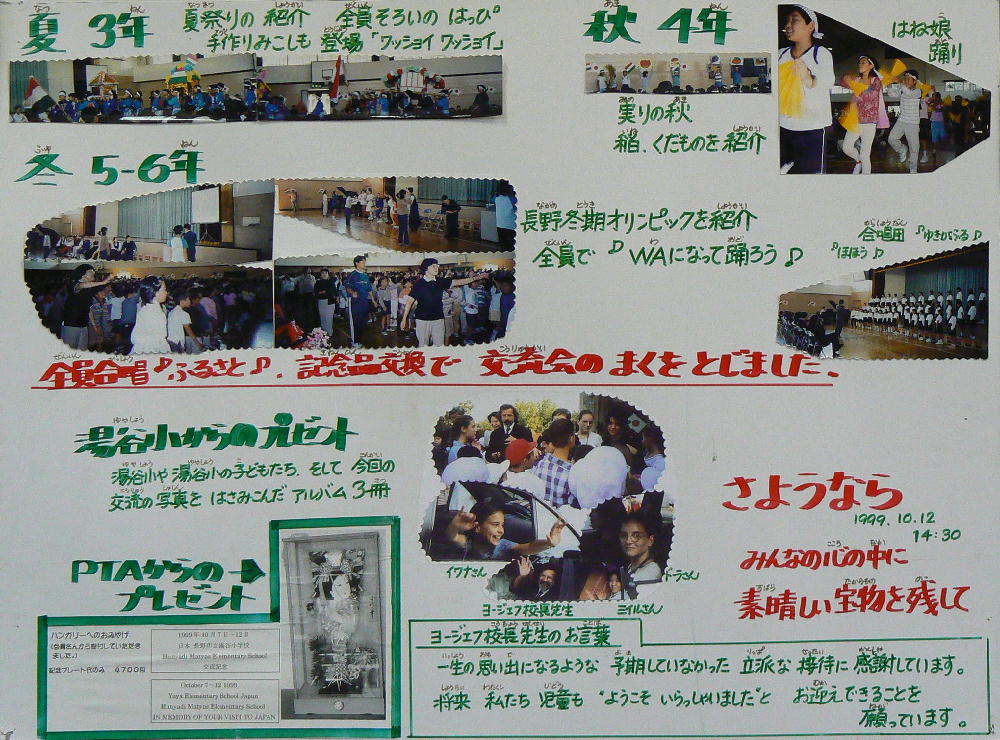 夏 3年
夏祭りの 紹介 全員そろいの はっぴ
手作りみこしも 登場「ワッショイ ワッショイ」
秋 4年
実りの秋
稲、くだものを 紹介
はね娘
踊り
冬 5-6年
長野冬期オリンピックを紹介
全員で ♪ WAになって踊ろう ♪
合唱団
♪ほほう♪
全員合唱 ♪ふるさと♪、記念品交換で 交流会の まくを とじました。
湯谷小からのプレゼント
湯谷小や 湯谷小の子どもたち、そして 今回の
交流の写真を はさみこんだ アルバム 3冊
イワナさん
ヨージェフ校長先生
ドーラさん
さようなら
1999.10.12
14:30
みんなの心の中に
素晴しい宝物を残して
PTAからの→
プレゼント
ハンガリーへのおみやげ
記念プレート代のみ 4700円
1999年10月7日〜12日
日本 長野市立湯谷小学校
Hunyadi Matyas Elementary School
交流記念
October 7〜12 1999
Yuya Elementary School Japan
Hunyadi Matyas Elementary School
IN MEMORY OF YOUR VISIT TO JAPAN
ヨージェフ校長先生のお言葉
一生の思い出になるような 予期していなかった 立派な 接待に 感謝しています。
将来 私たち 児童も "ようこそ いらっしゃいました"と お迎えできることを
願っています。